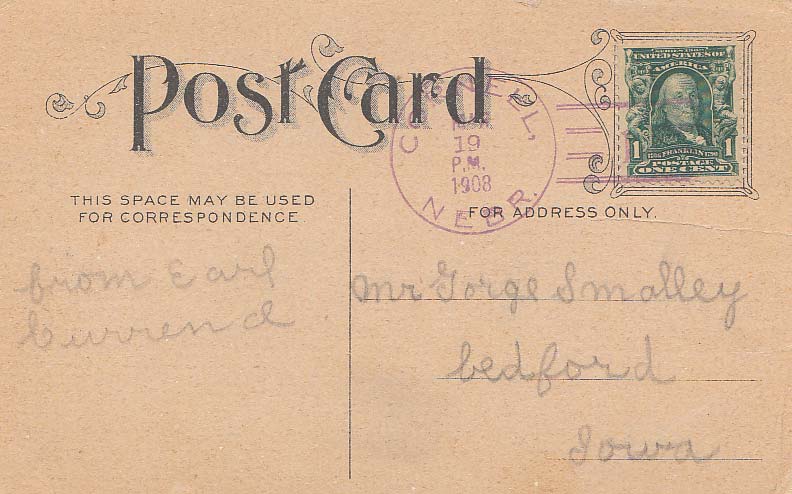 Post Card
NEBR.
19
P.M.
1908
SERIES 1902
UNITED STATES OF
AMERICA
1 1
FRANKLIN
POSTAGE
ONE CENT
THIS SPACE MAY BE USED
FOR CORRESPONDENCE
FOR ADDRESS ONLY.
from Earl
Mr Gorge Smalley
bedford
Iowa